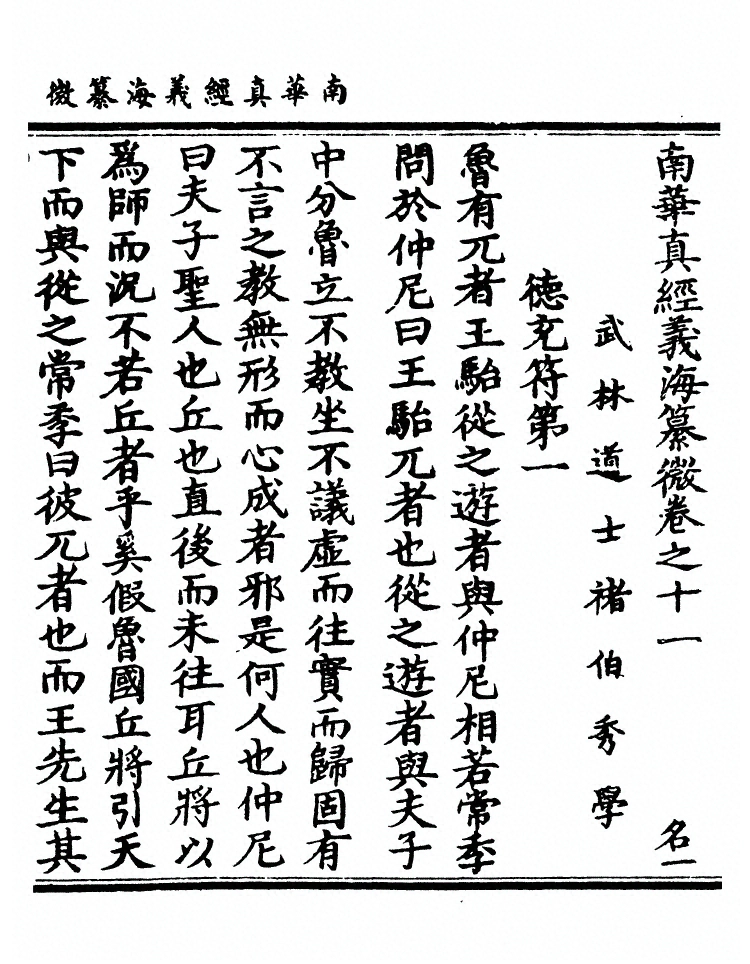 南華真經義海纂微
南華真經義海纂微卷之十一
名一
武林道士褚伯秀學
德充符第一
魯有兀者王駘從之遊者與仲尼相若常季
問於仲尼曰王駘兀者也從之遊者與夫子
中分魯立不教坐不議虛而往實而歸固有
不言之教無形而心成者邪是何人也仲尼
曰夫子聖人也丘也直後而未往耳丘將以
為師而況不若丘者乎奚假魯國丘將引天
下而與從之常季曰彼兀者也而王先生其